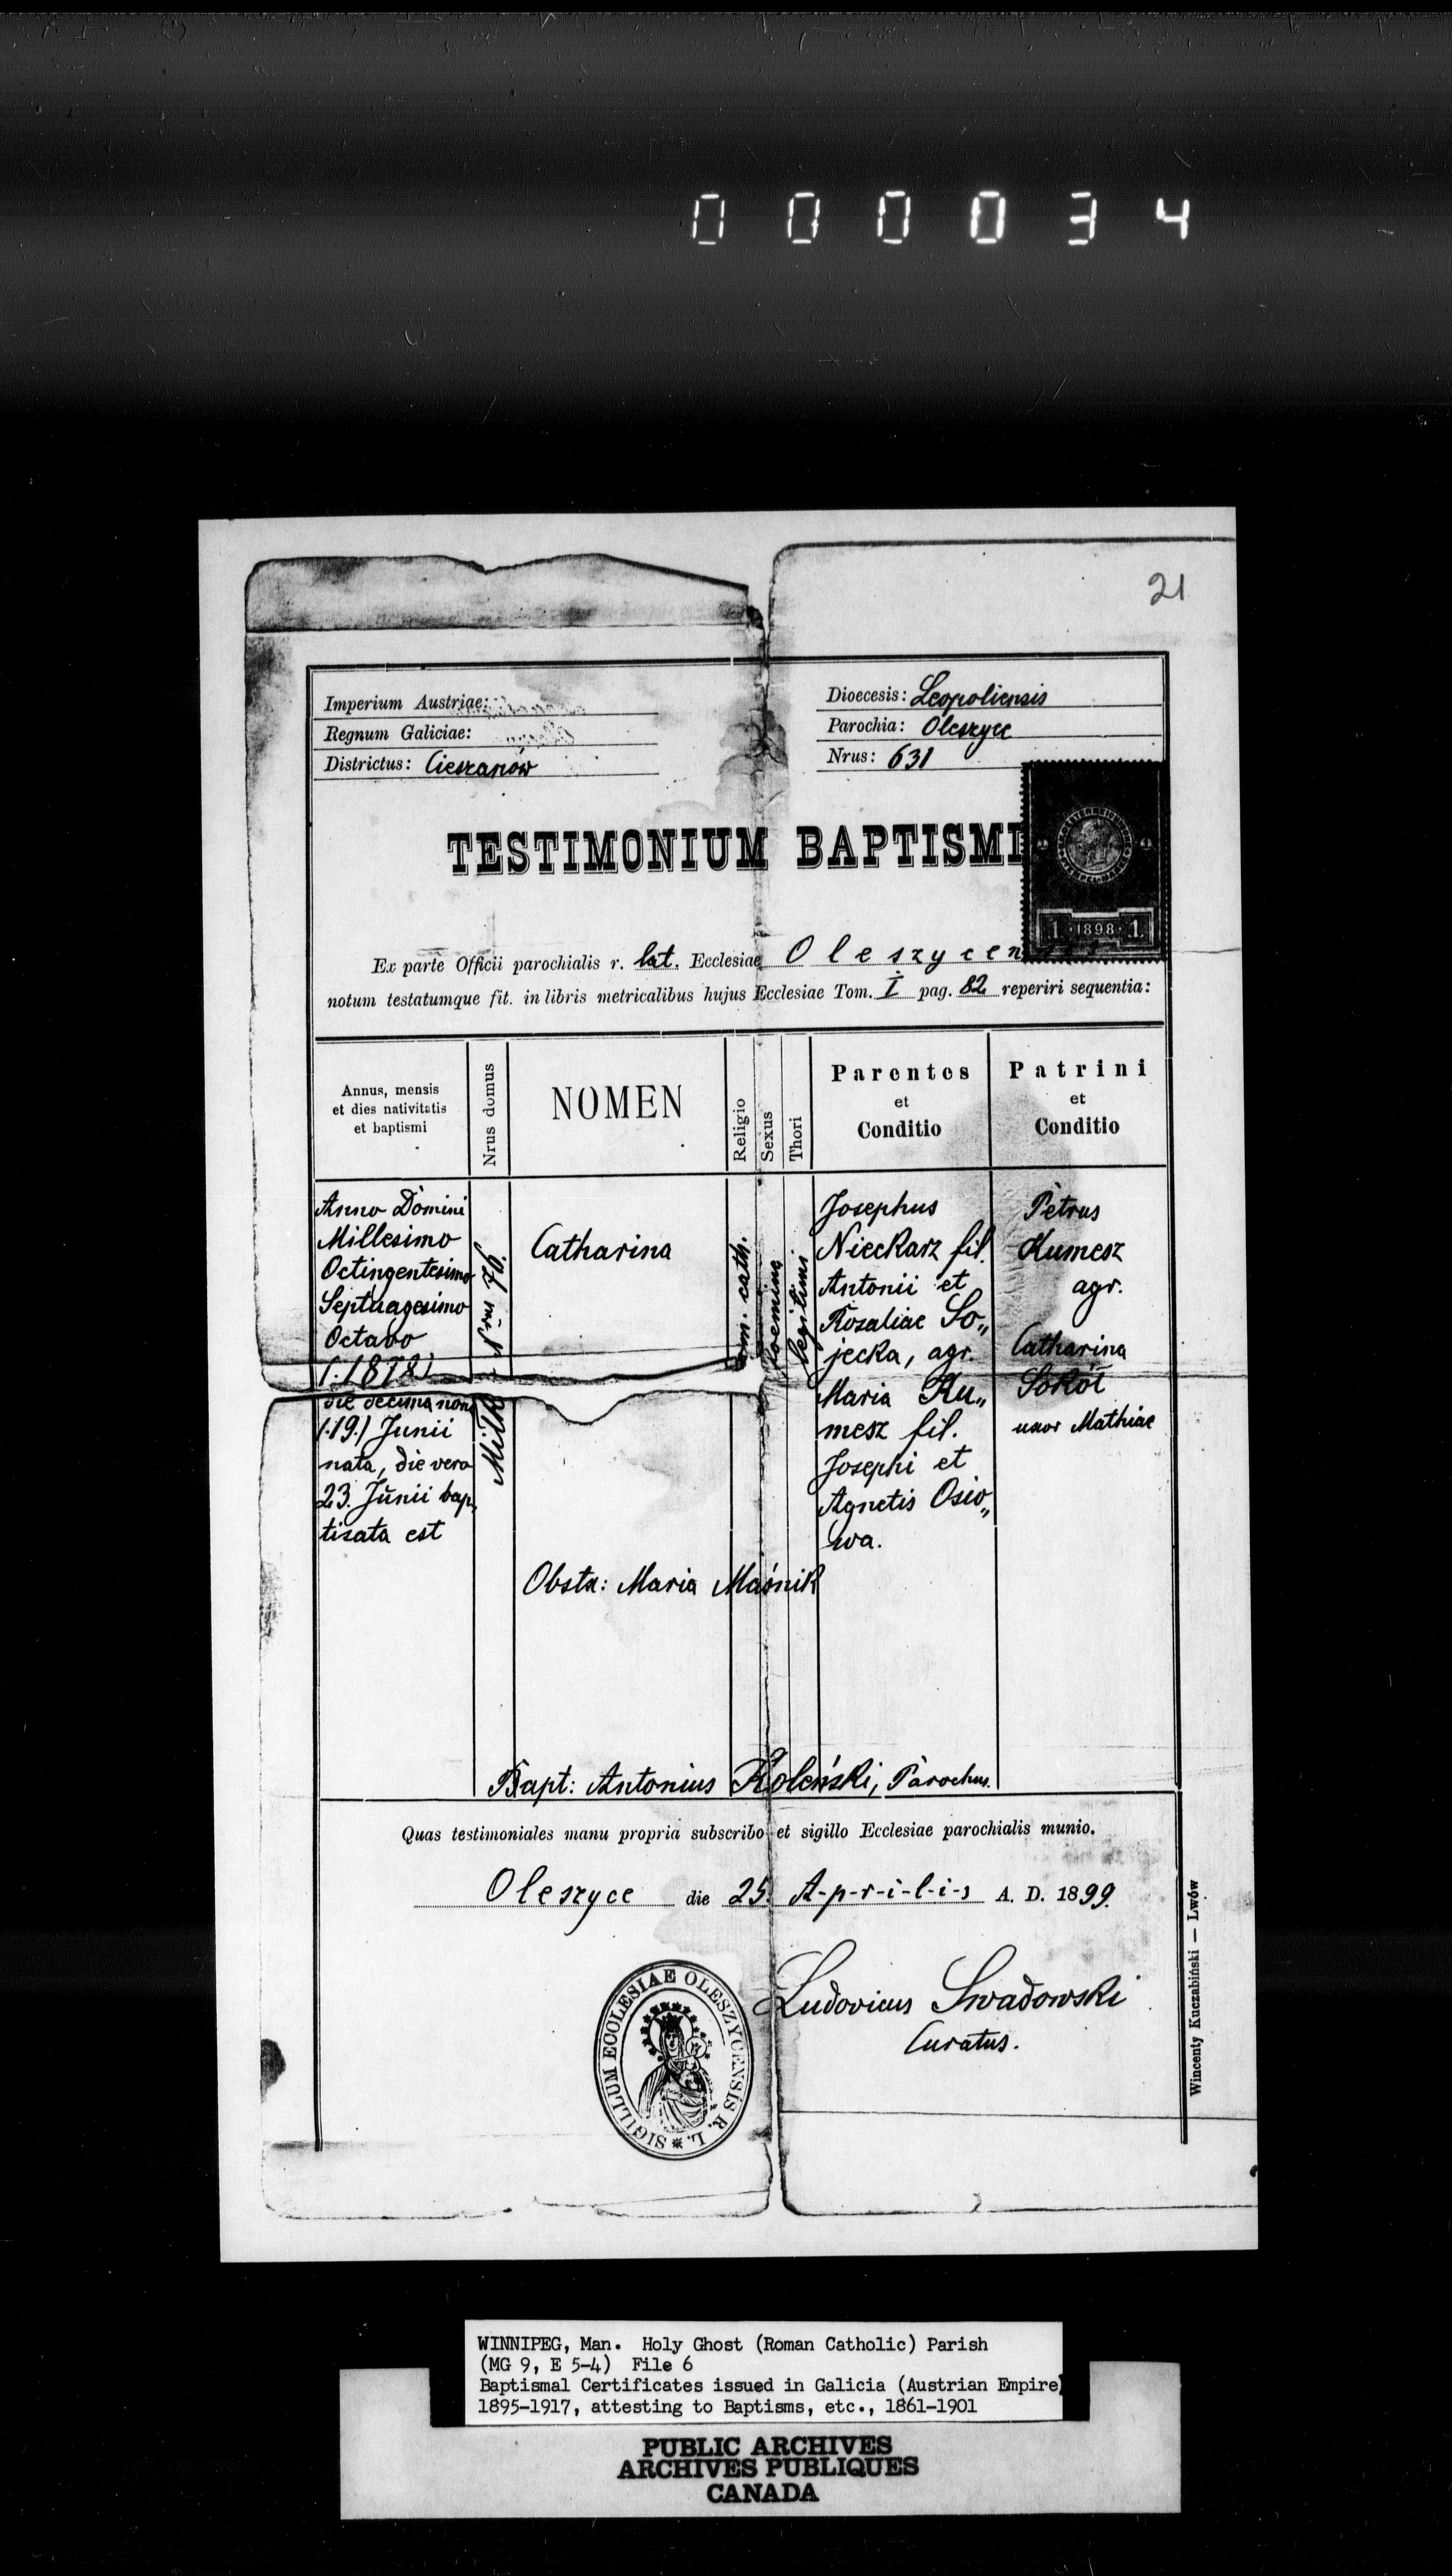 000034
21
Imperium Austriae:
Regnum Galiciae:
Districtus: Cieszanów
Dioecesis: Leopoliensis
Parochia: Oleszyce
Nrus: 631
TESTIMONIUM BAPTISMI
1 1898 1
Ex parte Officii parochialis r. lat. Ecclesiae Oleszycen
notum testatumque fit. in libris metricalibus hujus Ecclesiae Tom. I pag. 82 reperiri sequentia:
Annus, mensis
et dies nativitatis
et baptismi
Nrus domus
NOMEN
Religio
Sexus
Thori
Parentes
et
Conditio
Patrini
et
Conditio
Anno Domini
Millesimo
Octingentesimo
Septuagesimo
Octavo
(:1878:)
die decima nona
(:19.) Junii
nata, die vero
23. Junii bap„
tisata est
Nrus 76.
Catharina
rom. cath.
foemina
legitimi
Josephus
Nieckarz fil.
Antonii et
Rozaliae So„
jecka, agr.
Maria Ku„
mesz fil.
Josephi et
Agnetis Osio„
wa.
Petrus
Kumesz
agr.
Catharina
Sokół
uxor Mathiae
Obstx: Maria Maśnik
Bapt: Antonius Koleński, Parochus.
Quas testimoniales manu propria subscribo et sigillo Ecclesiae parochialis munio.
Oleszyce die 25. A-p-r-i-l-i-s A. D. 1899.
SIGILLUM ECCLESIAE OLESZYCENSIS R. L.
Ludovicus Swadowski
Curatus.
Wincenty Kuczabiński — Lwów
WINNIPEG, Man. Holy Ghost (Roman Catholic) Parish
(MG 9, E 5-4) File 6
Baptismal Certificates issued in Galicia (Austrian Empire)
1895-1917, attesting to Baptisms, etc., 1861-1901
PUBLIC ARCHIVES
ARCHIVES PUBLIQUES
CANADA